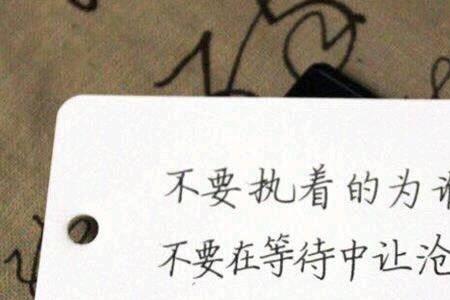 不要执着的为
不要在等待中让沧